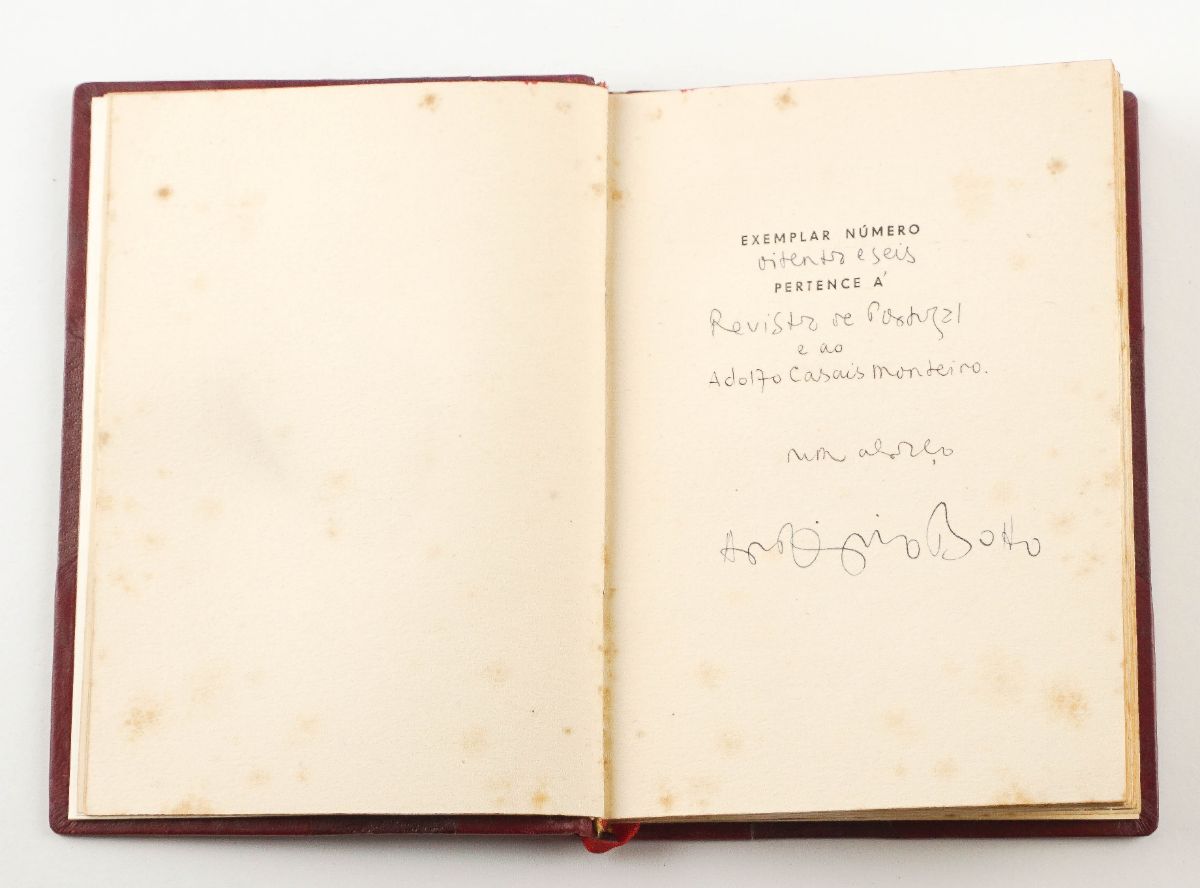 EXEMPLAR NÚMERO
oitenta e seis
PERTENCE Á
Revista de Portugal
e ao
Adolfo Casais Monteiro.
num abraço
António Botto